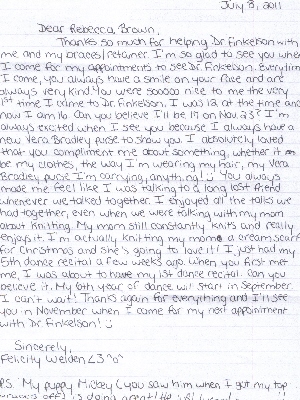 July 8, 2011
Dear Rebecca Brown,
Thanks so much for helping Dr. Finkelson with
me and my braces/retainer. I'm so glad to see you when
I come for my appointments to see Dr. Finkelson. Everytime
I come, you always have a smile on your face and are
always very kind. You were sooooo nice to me the very
1st time I came to Dr. Finkelson. I was 12 at the time and
now I am 16. Can you believe I'll be 17 on Nov. 23? I'm
always excited when I see you because I always have a
new Vera Bradley purse to show you. I absolutely loved
that you compliment me about something, whether it
be my clothes, the way I'm wearing my hair, my Vera
Bradley purse I'm carrying, anything! You always
made me feel like I was talking to a long lost friend
whenever we talked together. I enjoyed all the talks we
had together, even when we were talking with my mom
about knitting. My mom still constantly knits and really
enjoys it. I'm actually knitting my mom a cream scarf
for Christmas and she's going to love it! I just had my
5th dance recital a few weeks ago. When you first met
me, I was about to have my 1st dance recital. Can you
believe it. My 6th year of dance will start in September.
I can't wait! Thanks again for everything and I'll see
you in November when I come for my next appointment
with Dr. Finkelson! :)
Sincerely,
Felicity Weldon <3 ^o^
P.S. My puppy Mickey (you saw him when I got my top
off) is doing great! He